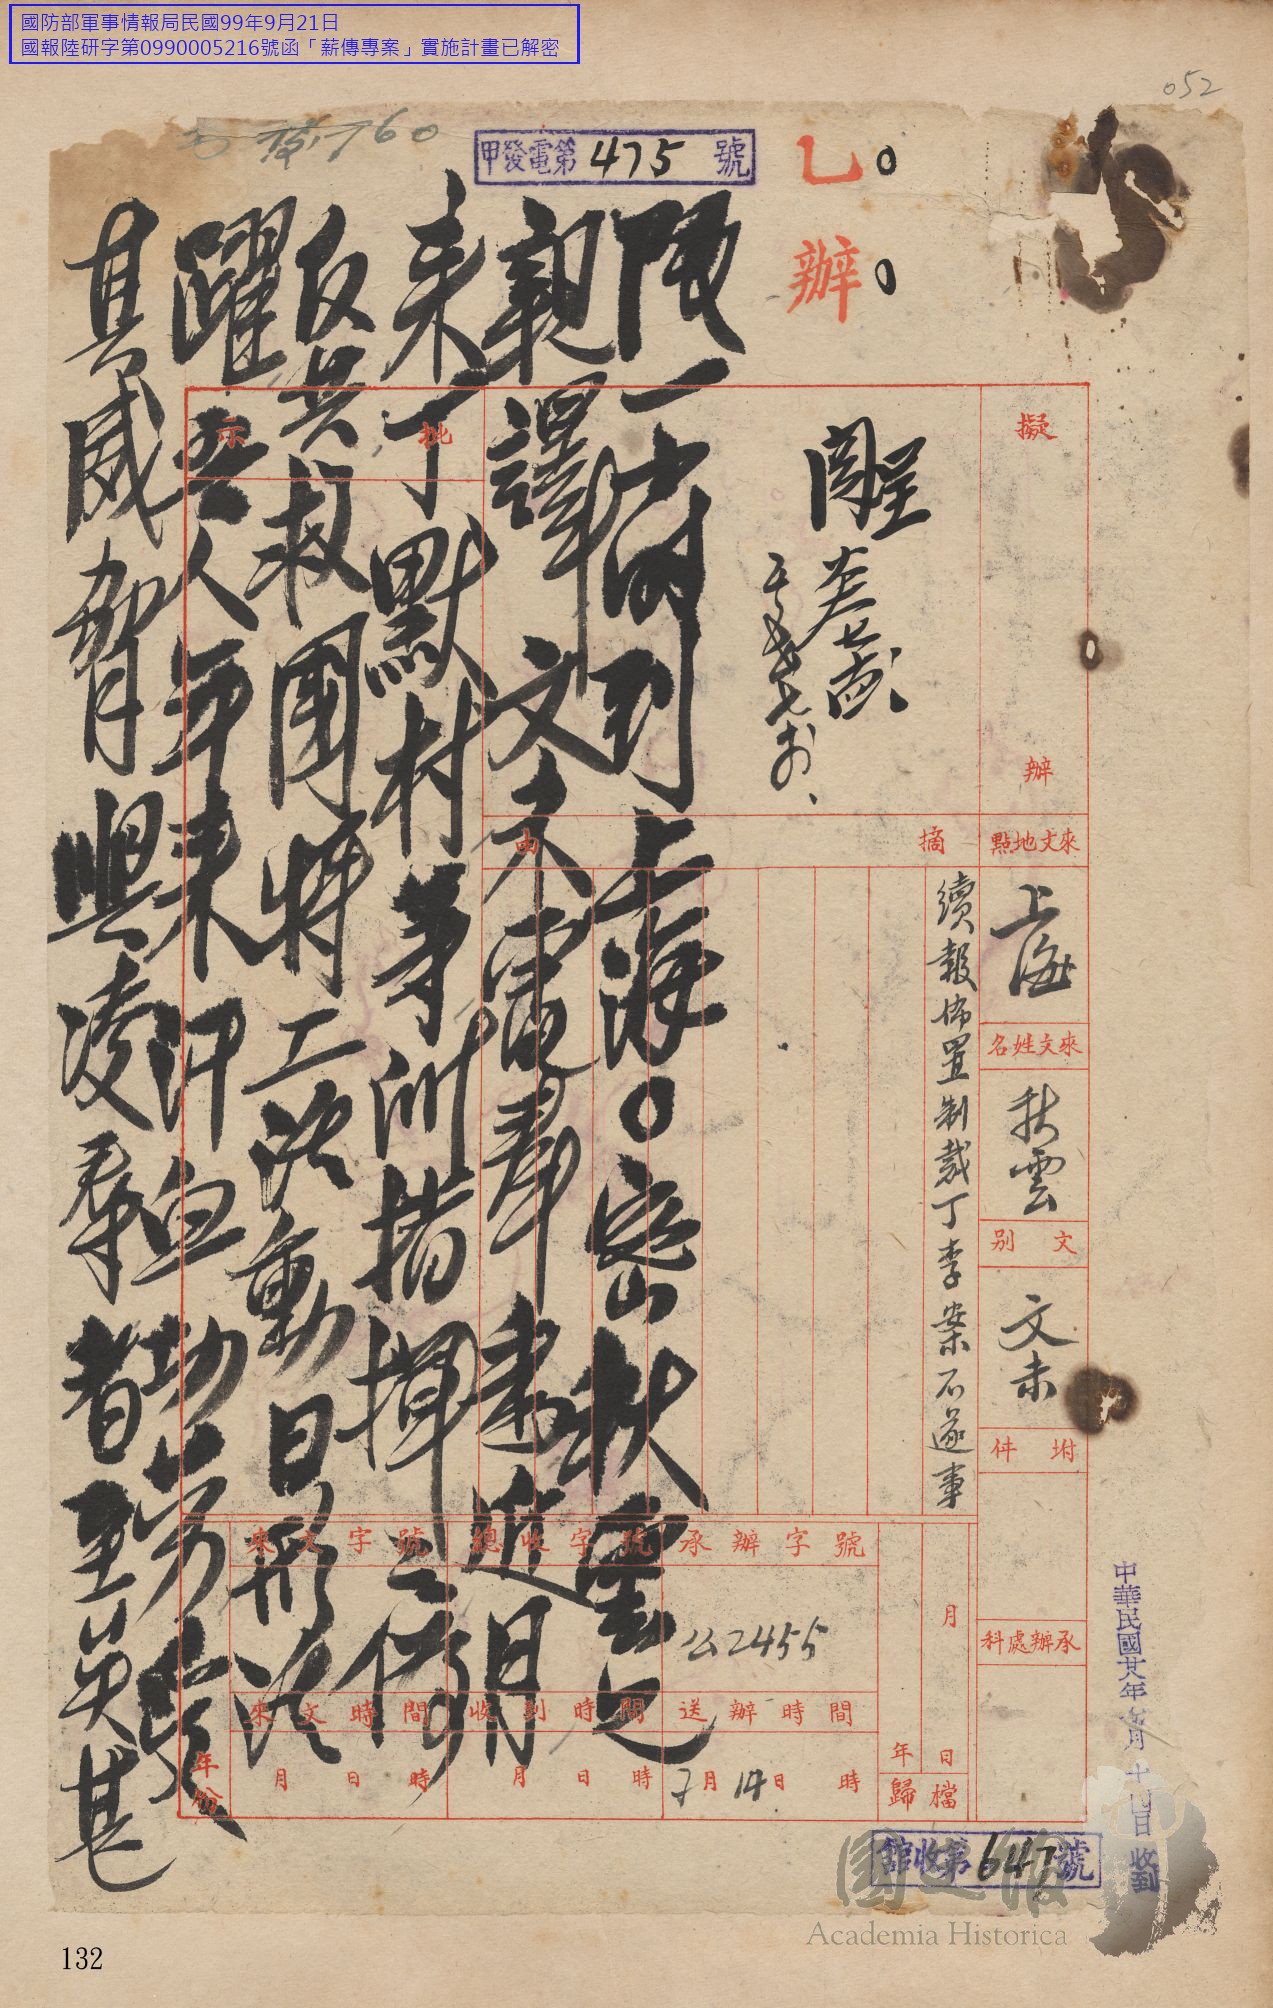 國防部軍事情報局民國99年9月21日
國報陸研字第0990005216號函「薪傳專案」實施計畫已解密
052
760
甲發電第475號
乙
辦
擬
辦
閱呈
來文地點
上海
來文姓名
秋雲
文別
文未
坿件
承辦處科
摘由
續報佈置制裁丁李案不遂事
批示
限一小時到上海○密秋雲已
親譯文未電奉悉進明
來丁默村等訓措揮之偽
反共救國特工於動日形活
躍吾人年來汗血功勞受
其威脅與凌辱者至矣甚
來文字號
總收字號
承辦字號
2455
來文時間
收到時間
送辦時間
月日時
月日時
7月14日時
年份
年月日
歸檔
中華民國廿八年 月十 日收到
館收第647號
國史館
Academia Historica
132